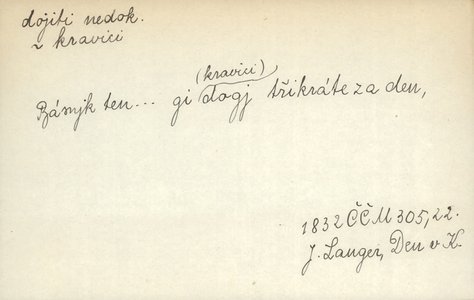 dojiti nedok.
~ kravici
(kravici)
Básnjk ten... gi dogj třikráte za den,
1832 ČČM 305,22.
J. Langer, Den v K.